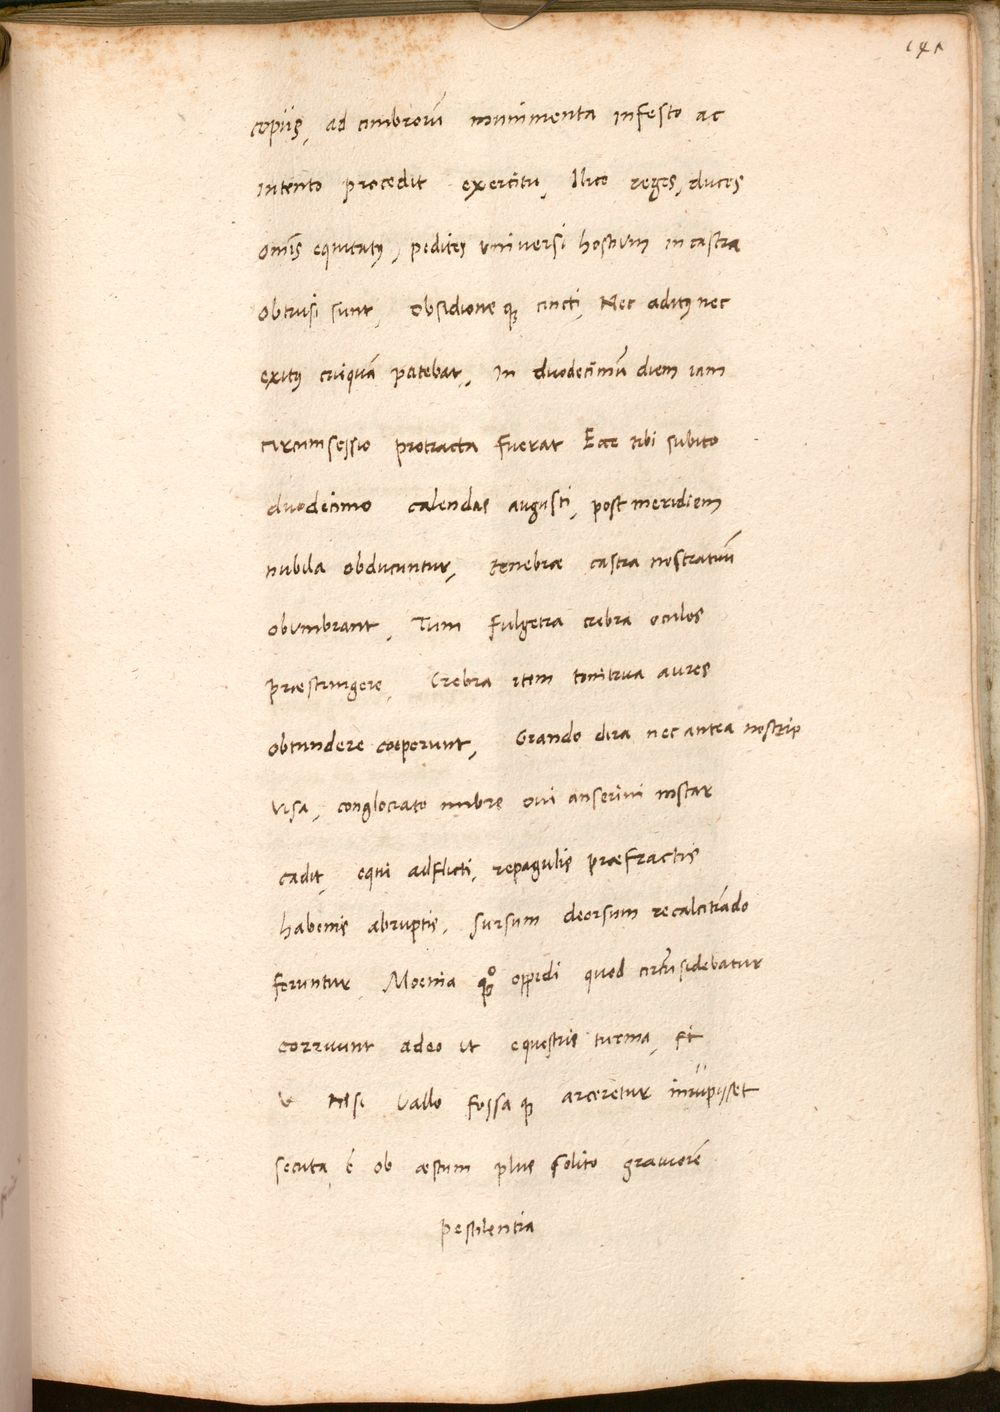 141
copiis, ad cimbrorū munimenta infesto ac
intento procedit exercitu, Ilico reges, duces
omīs equitatꝰ, pedites universi hostium in castra
obtrusi sunt, obsidione qꝫ cincti, Nec aditꝰ nec
exitꝰ cuiquā patebat, In duodecimū diem iam
circumsessio protracta fuerat Ecce tibi subito
duodecimo calendas augusti, post meridiem
nubila obducuntur, tenebrae castra nostratiū
obumbrant, Tum fulgetra crebra oculos
praestringere, Crebra item tonitrua aures
obtundere coeperunt, Grando dira nec antea nostris
visa, conglociato imbre ovi anserini instar
cadit, equi adflicti, repagulis praefractis
habenis abruptis, sursum deorsum recalcitrādo
feruntur, Moenia qꝫ oppidi quod circūsidebatur
corruunt adeo ut equestris turma, fit
v Nisi Vallo fossa qꝫ arceretur inrupisset
secuta, ē ob aestum plus solito graviorē
pestilentia